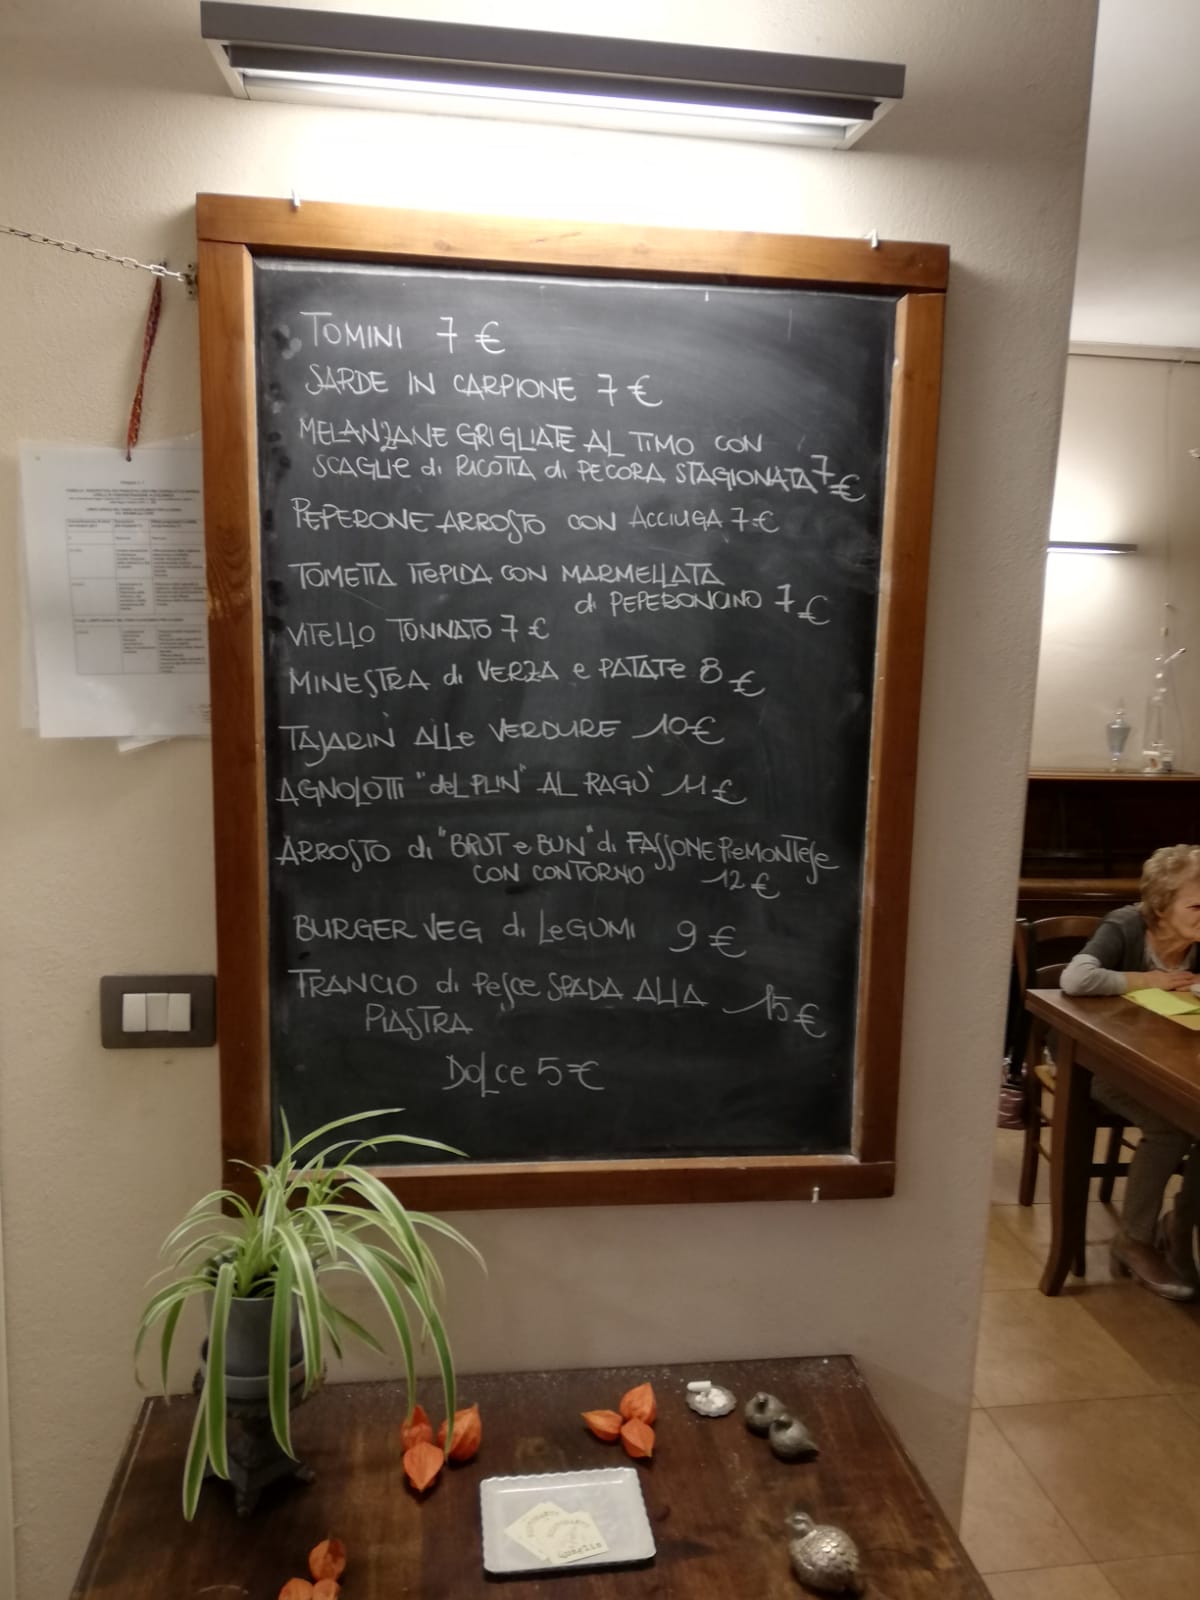 TOMINI 7 €
SARDE IN CARPIONE 7 €
MELANZANE GRIGLIATE AL TIMO CON
SCAGLIE di RICOTTA di PECORA STAGIONATA 7 €
PEPERONE ARROSTO CON ACCIUGA 7 €
TOMETTA TIEPIDA CON MARMELLATA
di PEPERONCINO 7 €
VITELLO TONNATO 7 €
MINESTRA di VERZA e PATATE 8 €
TAJARIN ALLE VERDURE 10 €
AGNOLOTTI "del PLIN" AL RAGU' 11 €
ARROSTO di "BRUT e BUN" di FASSONE PIEMONTESE
CON CONTORNO 12 €
BURGER VEG di LEGUMI 9 €
TRANCIO di PESCE SPADA ALLA 15 €
PIASTRA
DOLCE 5 €